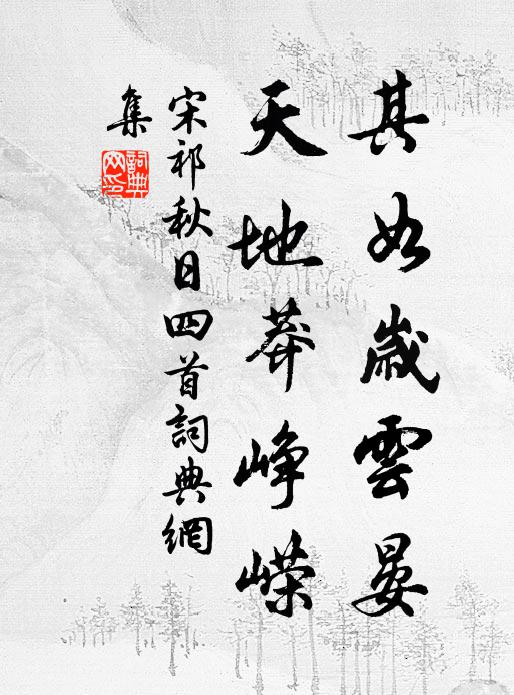 其如歲雲晏
天地莽崢嶸
宋祁秋日四首詞典網
集
詞典
网印